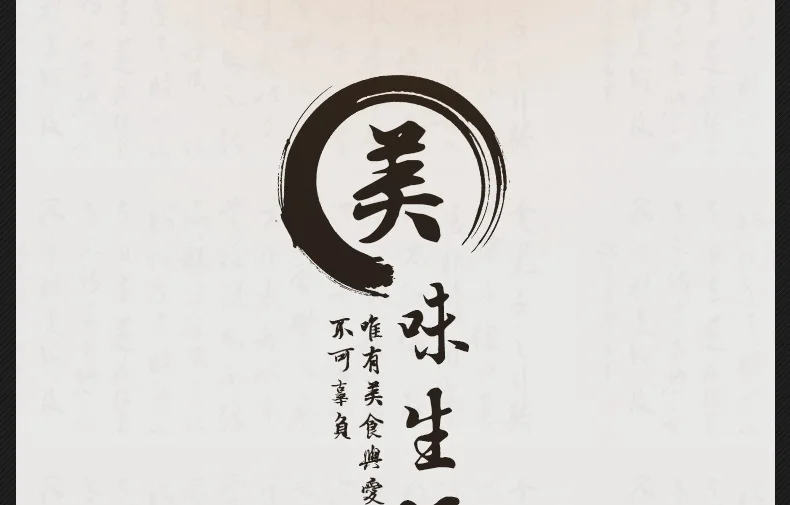 美
味
生
唯有美食與愛
不可辜負